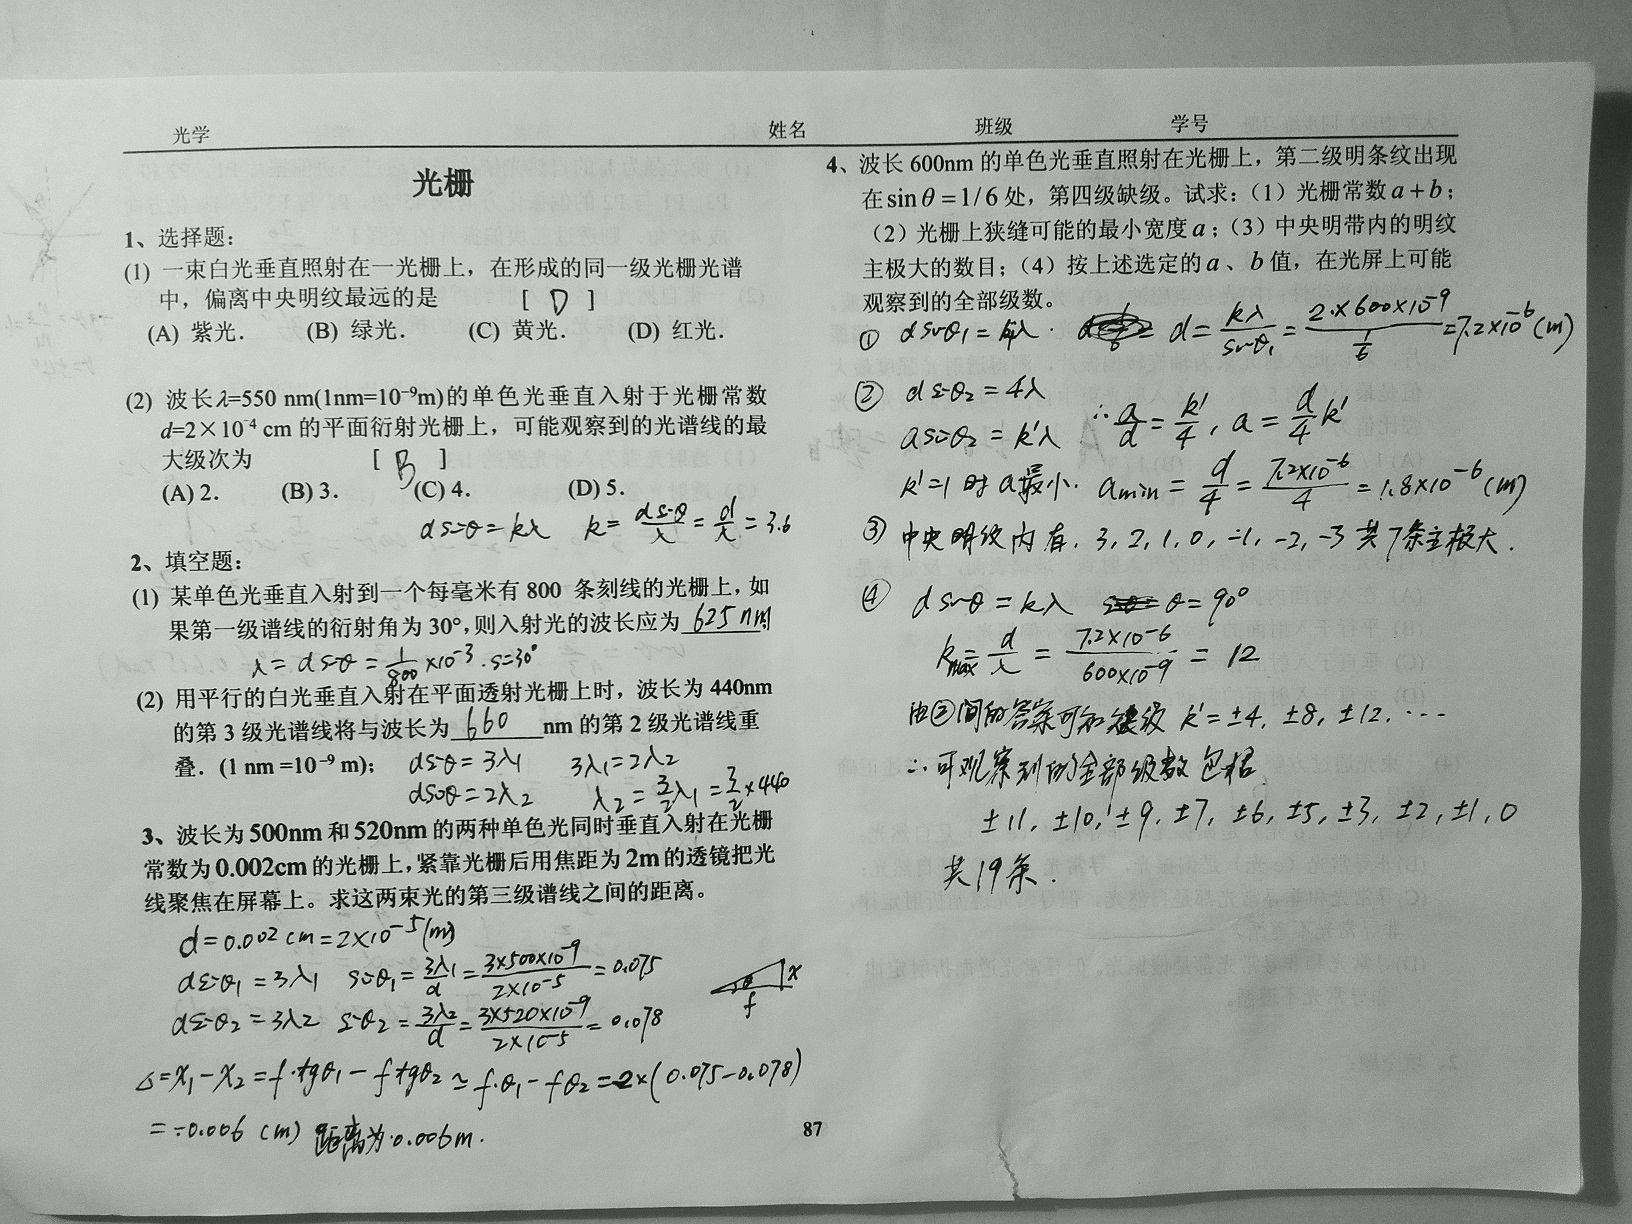 光学 姓名 班级 学号
光栅
1、选择题：
(1) 一束白光垂直照射在一光栅上，在形成的同一级光栅光谱
中，偏离中央明纹最远的是 [ D ]
(A) 紫光． (B) 绿光． (C) 黄光． (D) 红光．
(2) 波长λ=550 nm(1nm=10⁻⁹m)的单色光垂直入射于光栅常数
d=2×10⁻⁴ cm 的平面衍射光栅上，可能观察到的光谱线的最
大级次为 [ B ]
(A) 2． (B) 3． (C) 4． (D) 5．
d sinθ = kλ k = d sinθ/λ = d/λ = 3.6
2、填空题：
(1) 某单色光垂直入射到一个每毫米有 800 条刻线的光栅上，如
果第一级谱线的衍射角为 30°，则入射光的波长应为 625nm
λ = d sinθ = 1/800 ×10⁻³ . sin30°
(2) 用平行的白光垂直入射在平面透射光栅上时，波长为 440nm
的第 3 级光谱线将与波长为 660 nm 的第 2 级光谱线重
叠．(1 nm =10⁻⁹ m)； d sinθ = 3λ1 3λ1 = 2λ2
d sinθ = 2λ2 λ2 = 3/2 λ1 = 3/2 × 440
3、波长为500nm 和520nm 的两种单色光同时垂直入射在光栅
常数为0.002cm 的光栅上，紧靠光栅后用焦距为2m 的透镜把光
线聚焦在屏幕上。求这两束光的第三级谱线之间的距离。
d = 0.002 cm = 2×10⁻⁵ (m)
d sinθ1 = 3λ1 sinθ1 = 3λ1/d = 3×500×10⁻⁹/2×10⁻⁵ = 0.075
x
θ
f
d sinθ2 = 3λ2 sinθ2 = 3λ2/d = 3×520×10⁻⁹/2×10⁻⁵ = 0.078
Δ = x1 - x2 = f·tgθ1 - f tgθ2 ≃ f·θ1 - fθ2 = 2×(0.075-0.078)
= -0.006 (m) 距离为0.006m.
87
4、波长 600nm 的单色光垂直照射在光栅上，第二级明条纹出现
在 sin θ = 1/6 处，第四级缺级。试求：（1）光栅常数 a + b；
（2）光栅上狭缝可能的最小宽度 a；（3）中央明带内的明纹
主极大的数目；（4）按上述选定的 a 、b 值，在光屏上可能
观察到的全部级数。
① d sinθ1 = kλ . d = kλ/sinθ1 = 2×600×10⁻⁹/(1/6) = 7.2×10⁻⁶ (m)
② d sinθ2 = 4λ
a sinθ2 = k'λ ∴ a/d = k'/4, a = d/4 k'
k'=1 时 a最小. amin = d/4 = 7.2×10⁻⁶/4 = 1.8×10⁻⁶ (m)
③ 中央明纹内有. 3, 2, 1, 0, -1, -2, -3 共7条主极大.
④ d sinθ = kλ θ = 90°
kmax = d/λ = 7.2×10⁻⁶/600×10⁻⁹ = 12
由②问的答案可知缺级 k' = ±4, ±8, ±12, ···
∴ 可观察到的全部级数包括
±11, ±10, ±9, ±7, ±6, ±5, ±3, ±2, ±1, 0
共19条.